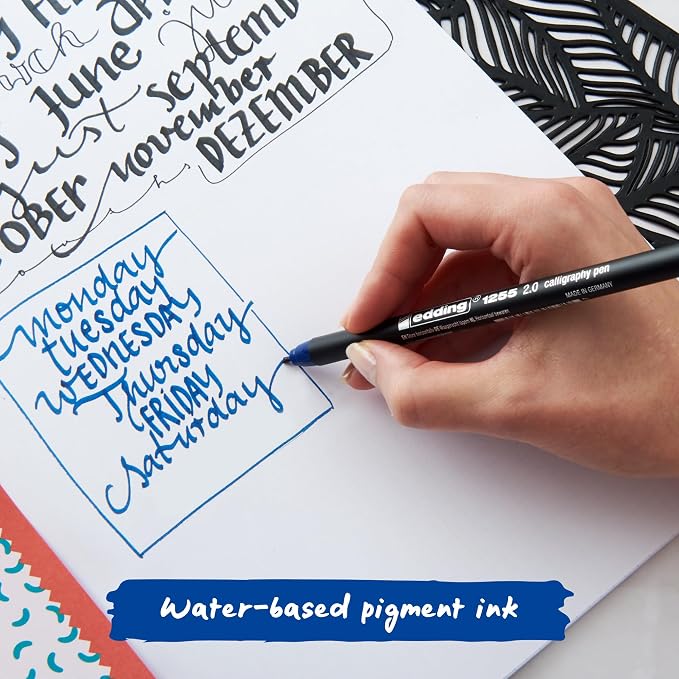 arch ap
June
ust septemb
OBER november
DEZEMBER
monday
tuesday
WEDNESDAY
Thursday
FRIDAY
Saturday
edding® 1255 2.0 calligraphy pen
MADE IN GERMANY
Water-based pigment ink